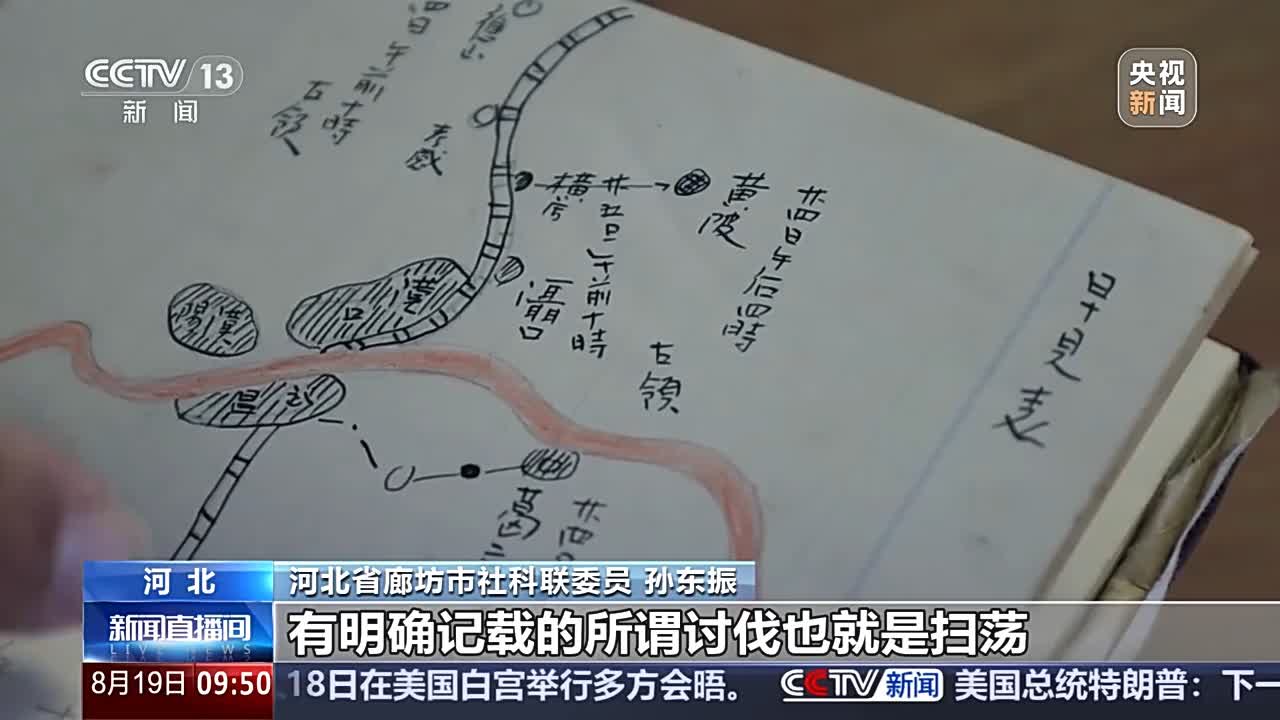 CCTV 13
新闻
央视
新闻
四日午前十時
占領
孝感
横
廿五日午前十時
黄陂
廿四日午后四時
漢
口
漢陽
武昌
占領
早見表
葛
廿四
河北
河北省廊坊市社科联委员 孙东振
新闻直播间
LIVE NEWS
有明确记载的所谓讨伐也就是扫荡
8月19日 09:50
18日在美国白宫举行多方会晤。 CCTV新闻 美国总统特朗普：下一